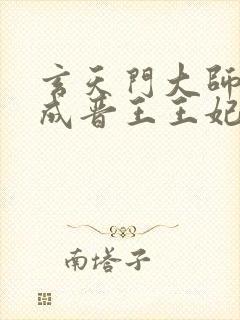 玄天門大師
成晉王王妃
南塔子